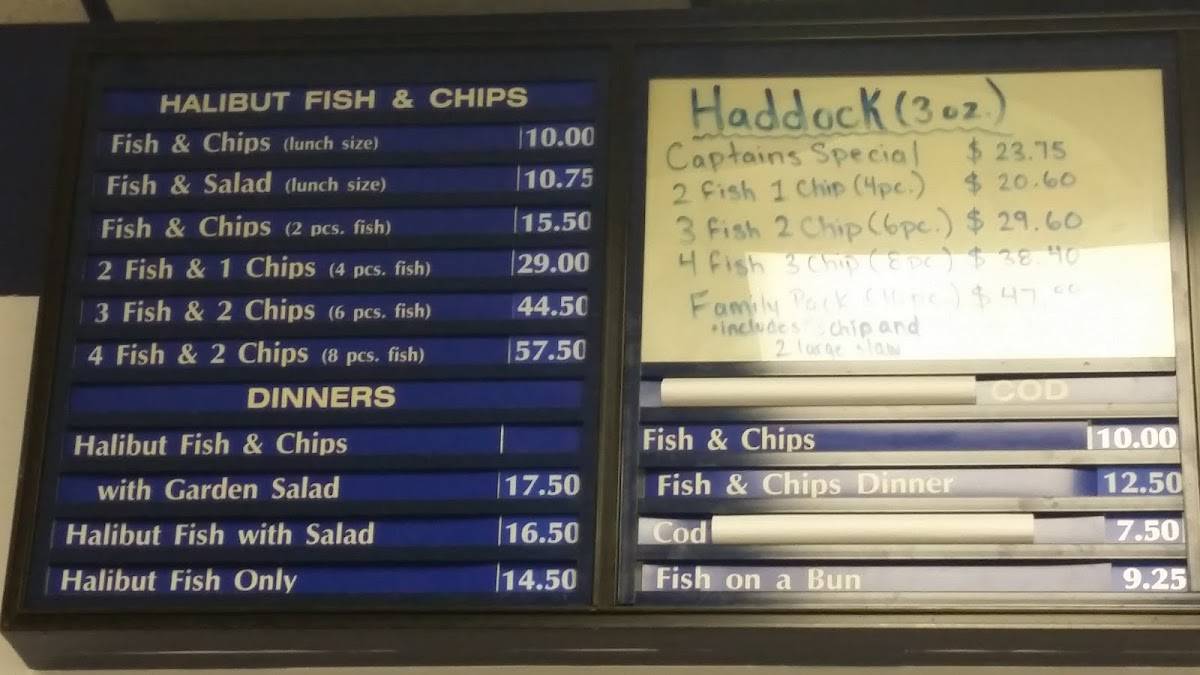 HALIBUT FISH & CHIPS
Fish & Chips (lunch size) 10.00
Fish & Salad (lunch size) 10.75
Fish & Chips (2 pcs. fish) 15.50
2 Fish & 1 Chips (4 pcs. fish) 29.00
3 Fish & 2 Chips (6 pcs. fish) 44.50
4 Fish & 2 Chips (8 pcs. fish) 57.50
DINNERS
Halibut Fish & Chips
with Garden Salad 17.50
Halibut Fish with Salad 16.50
Halibut Fish Only 14.50
Haddock (3 oz.)
Captains Special $ 23.75
2 Fish 1 Chip (4pc.) $ 20.60
3 Fish 2 Chip (6pc.) $ 29.60
4 Fish 3 Chip (8pc) $ 38.40
Family Pack $ 47.00
•includes chip and
2 large slaw
COD
Fish & Chips 10.00
Fish & Chips Dinner 12.50
Cod 7.50
Fish on a Bun 9.25